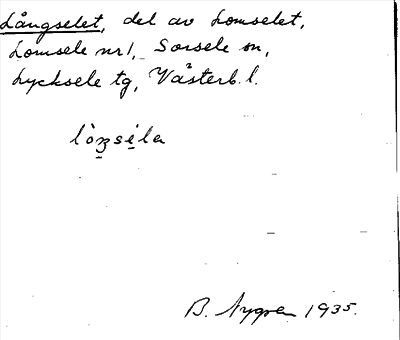 Långselet, del av Lomselet,
Lomsele nr 1, Sorsele sn,
Lycksele tg, Västerb. l.
B. Nygren 1935.